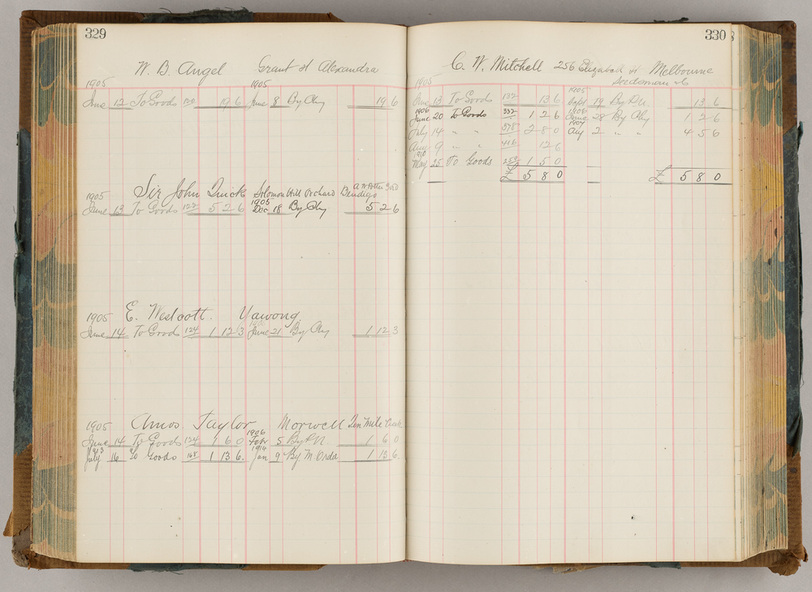 329
W. B. Angel Grant St Alexandra
1905 1905
June 12 To Goods 19 6 June 8 By Chq 19 6
Sir John Quick Solomon Hill Orchard Bendigo
1905 1905
June 13 To Goods 122 5 2 6 Dec 18 By Chq 5 2 6
1905 E. Westcott Yawong
June 14 To Goods 124 1 12 3 June 21 By Chq 1 12 3
1905 Amos Taylor Morwell Ten Mile Creek
1906
June 14 To Goods 124 1 6 0 5 By P.N. 1 6 0
July 16 To Goods 1 13 6 Jan 9 By M Order 1 13 6
330
C. W. Mitchell 256 Elizabeth St Melbourne
Seedsman
1905 1905
Aug 13 To Goods 13 6 Sept 19 By P.N. 13 6
1906
June 20 To Goods 332 1 2 6 June 28 By Chq 1 2 6
1907
July 14 " " 2 8 0 Aug 2 " " 4 5 6
Aug 9 " " 12 6
May 25 To Goods 1 5 0
£ 5 8 0 £ 5 8 0